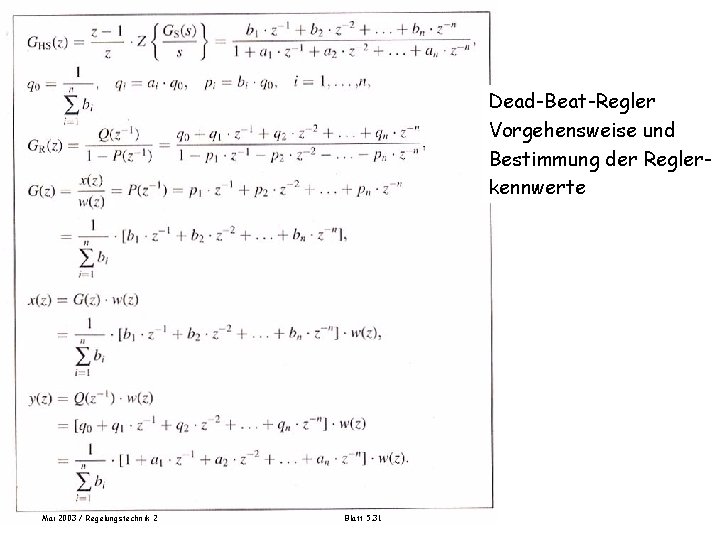 G_HS(z) = (z − 1)/z · Z{G_S(s)/s} = (b₁ · z⁻¹ + b₂ · z⁻² + . . . + bₙ · z⁻ⁿ)/(1 + a₁ · z⁻¹ + a₂ · z⁻² + . . . + aₙ · z⁻ⁿ),
q₀ = 1/(∑ᵢ₌₁ⁿ bᵢ), qᵢ = aᵢ · q₀, pᵢ = bᵢ · q₀, i = 1, . . . , n,
G_R(z) = Q(z⁻¹)/(1 − P(z⁻¹)) = (q₀ + q₁ · z⁻¹ + q₂ · z⁻² + . . . + qₙ · z⁻ⁿ)/(1 − p₁ · z⁻¹ − p₂ · z⁻² − . . . − pₙ · z⁻ⁿ),
G(z) = x(z)/w(z) = P(z⁻¹) = p₁ · z⁻¹ + p₂ · z⁻² + . . . + pₙ · z⁻ⁿ
= 1/(∑ᵢ₌₁ⁿ bᵢ) · [b₁ · z⁻¹ + b₂ · z⁻² + . . . + bₙ · z⁻ⁿ],
x(z) = G(z) · w(z)
= 1/(∑ᵢ₌₁ⁿ bᵢ) · [b₁ · z⁻¹ + b₂ · z⁻² + . . . + bₙ · z⁻ⁿ] · w(z),
y(z) = Q(z⁻¹) · w(z)
= [q₀ + q₁ · z⁻¹ + q₂ · z⁻² + . . . + qₙ · z⁻ⁿ] · w(z)
= 1/(∑ᵢ₌₁ⁿ bᵢ) · [1 + a₁ · z⁻¹ + a₂ · z⁻² + . . . + aₙ · z⁻ⁿ] · w(z).
Dead-Beat-Regler
Vorgehensweise und
Bestimmung der Regler-
kennwerte
Mai 2003 / Regelungstechnik 2
Blatt 5.31